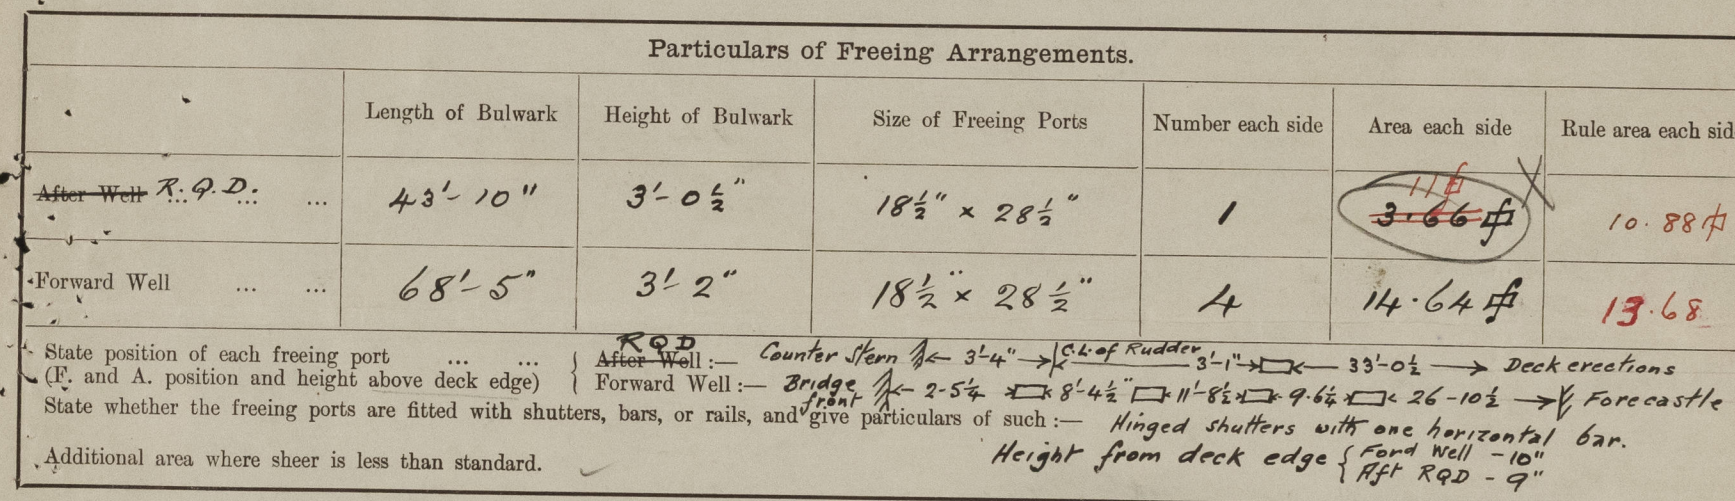 Particulars of Freeing Arrangements.
Length of Bulwark Height of Bulwark Size of Freeing Ports Number each side Area each side Rule area each sid
After Well R.Q.D. ... ... ... 43'-10" 3'-0½" 18½" × 28½" 1 11 3.66 10.88
Forward Well ... ... 68'-5" 3'-2" 18½" × 28½" 4 14.64 13.68
State position of each freeing port ... ... RQD After Well :— Counter Stern ←3'-4"→ C.L. of Rudder 3'-1"→ ←33'-0½→ Deck erections
(F. and A. position and height above deck edge) Forward Well :— Bridge front ←2-5¼ 8'-4½" 11'-8½ 9-6¼ 26-10½→ Forecastle
State whether the freeing ports are fitted with shutters, bars, or rails, and give particulars of such :— Hinged shutters with one horizontal bar.
Additional area where sheer is less than standard. Height from deck edge { Ford Well - 10"
Aft RQD - 9"